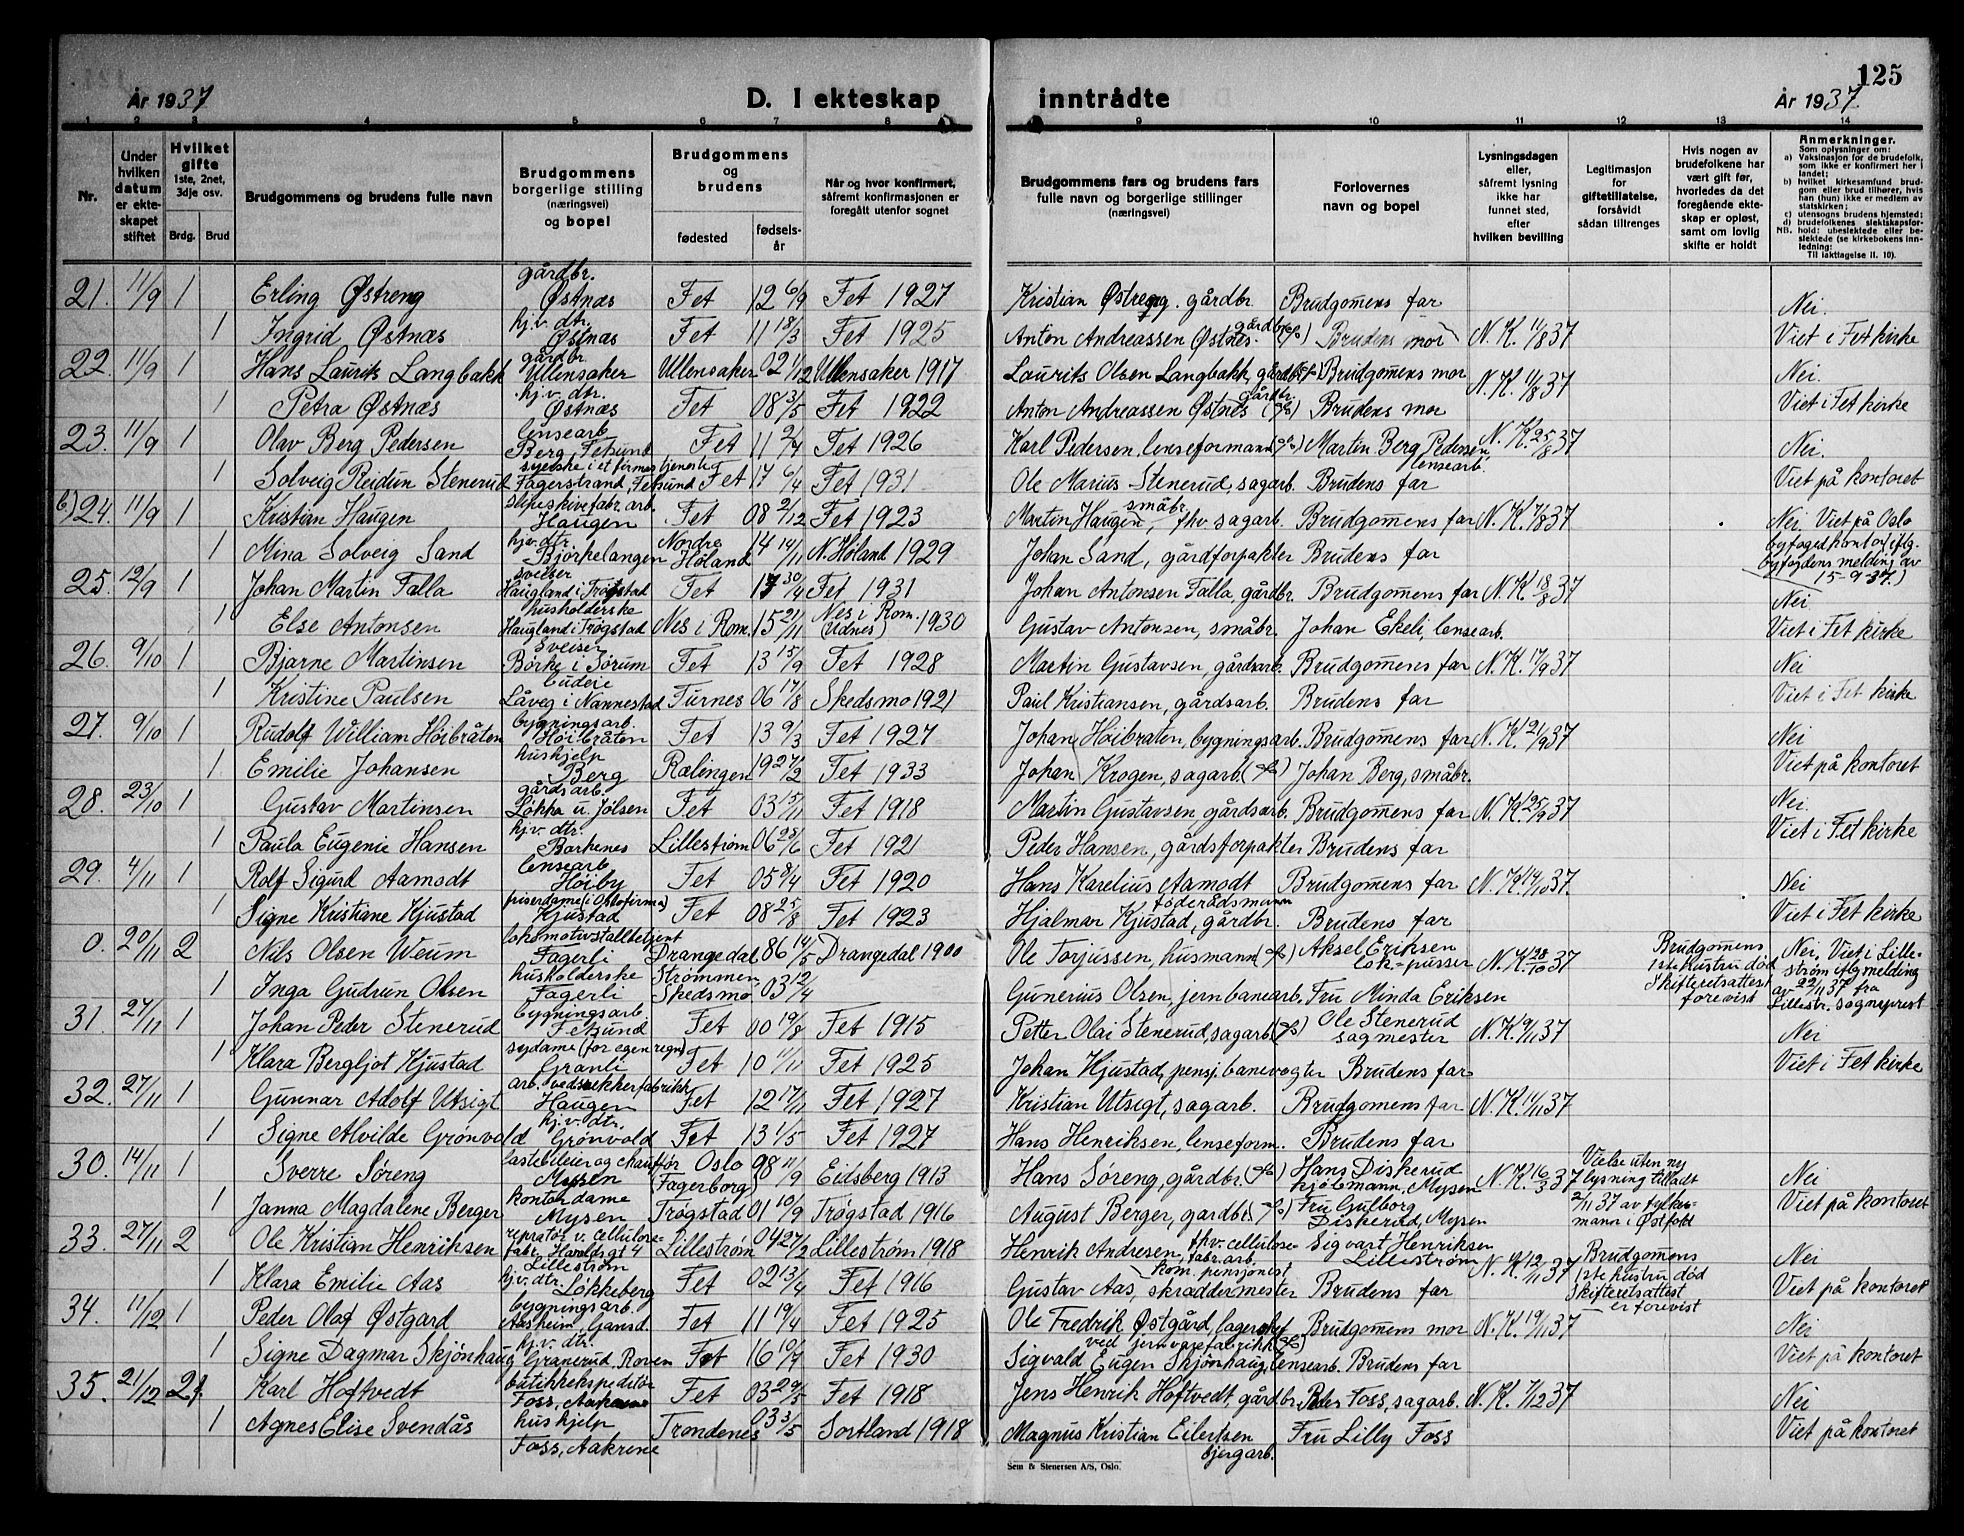 125
År 1937
D. I ekteskap inntrådte
År 1937
1 2 3 4 5 6 7 8 9 10 11 12 13 14
Nr.
Under hvilken datum er ekteskapet stiftet
Hvilket gifte 1ste, 2net, 3dje osv.
Brdg. Brud
Brudgommens og brudens fulle navn
Brudgommens borgerlige stilling (næringsvei) og bopel
Brudgommens og brudens
fødested
fødselsår
Når og hvor konfirmert, såfremt konfirmasjonen er foregått utenfor sognet
Brudgommens fars og brudens fars fulle navn og borgerlige stillinger (næringsvei)
Forlovernes navn og bopel
Lysningsdagen eller, såfremt lysning ikke har funnet sted, efter hvilken bevilling
Legitimasjon for giftetillatelse, forsåvidt sådan tiltrenges
Hvis nogen av brudefolkene har vært gift før, hvorledes da det foregående ekteskap er opløst, samt om lovlig skifte er holdt
Anmerkninger.
Som oplysninger om:
a) Vaksinasjon for de brudefolk, som ikke er konfirmert her i landet;
b) hvilket kirkesamfund brudgom eller brud tilhører, hvis han (hun) ikke er medlem av statskirken;
c) utensogns brudens hjemsted;
d) brudefolkenes slektskapsforhold: ubeslektede eller beslektede (se kirkebokens innledning:
NB. Til iakttagelse II. 10).
21. 11/9 1 Erling Østreng gårdbr. Østnæs Fet 12 6/9 Fet 1927 Kristian Østreng, gårdbr. Brudgomens far Nei.
1 Ingrid Østnæs hj.v. dtr. Østnæs Fet 11 18/3 Fet 1925 Anton Andreassen Østnes. gårdbr. Brudens mor N.K. 11/8 37 Viet i Fet kirke
22. 11/9 1 Hans Laurits Langbakk gårdbr. Ullensaker Ullensaker 02 1/12 Ullensaker 1917 Laurits Olsen Langbakk, gårdbr. Brudgomens mor N.K. 11/8 37 Nei.
1 Petra Østnæs hj.v. dtr. Østnæs Fet 08 3/5 Fet 1922 Anton Andreassen Østnes gårdbr. Brudens mor Viet i Fet kirke
23. 11/9 1 Olav Berg Pedersen lensearb Berg, Fetsund Fet 11 2/4 Fet 1926 Karl Pedersen, lenseformann Martin Berg Pedersen, lensearb. N.K. 25/8 37 Nei.
1 Solveig Reidun Stenerud syerske i et firmas tjeneste Fagerstrand, Fetsund Fet 17 6/4 Fet 1931 Ole Marius Stenerud, sagarb. Brudens far Viet på kontoret
6) 24. 11/9 1 Kristian Haugen slipeskivefabr. arb. Haugen Fet 08 2/12 Fet 1923 Martin Haugen, småbr. fhv. sagarb. Brudgomens far N.K. 7/8 37 Nei, Viet på Oslo
1 Mina Solveig Sand hjv. dtr. Bjørkelangen Nordre Høland 14 14/11 N. Høland 1929 Johan Sand, gårdforpakter Brudens far byfogedkontor (iflg. byfogdens melding av 15-9 37.)
25. 12/9 1 Johan Martin Falla sveiser Haugland i Trøgstad Fet 13 30/4 Fet 1931 Johan Antonsen Falla, gårdbr. Brudgomens far N.K. 18/8 37 Nei.
1 Else Antonsen husholderske Haugland i Trøgstad Nes i Rom. 15 21/11 Nes i Rom. (Udnes) 1930 Gustav Antonsen, småbr. Johan Ekeli, lensearb. Viet i Fet kirke
26. 9/10 1 Bjarne Martinsen Sveiser Børke i Sørum Fet 13 15/9 Fet 1928 Martin Gustavsen, gårdsarb. Brudgomens far N.K. 17/9 37 Nei
1 Kristine Paulsen budeie Låveg i Nannestad Furnes 06 17/8 Skedsmo 1921 Paul Kristiansen, gårdsarb. Brudens far Viet i Fet kirke
27. 9/10 1 Rudolf William Høibråten bygningsarb. Høibråten Fet 13 9/3 Fet 1927 Johan Høibråten, bygningsarb. Brudgomens far N.K. 21/9 37 Nei
1 Emilie Johansen hushjelp Berg Rælingen 19 27/2 Fet 1933 Johan Krogen, sagarb. Johan Berg, småbr. Viet på kontoret
28. 23/10 1 Gustav Martinsen gårdsarb. Løkka u. Jølsen Fet 03 15/11 Fet 1918 Martin Gustavsen, gårdsarb. Brudgomens far N.K. 25/9 37 Nei.
1 Paula Eugenie Hansen hj.v. dtr. Barkenes Lillestrøm 06 28/6 Fet 1921 Peder Hansen, gårdsforpakter Brudens far Viet i Fet kirke
29. 4/11 1 Rolf Sigurd Aamodt lensearb Høiby Fet 05 8/4 Fet 1920 Hans Karelius Aamodt føderådsmann Brudgomens far N.K. 14/10 37 Nei
1 Signe Kristiane Hjustad friserdame (i Oslofirma) Kjustad Fet 08 25/8 Fet 1923 Hjalmar Kjustad, gårdbr. Brudens far Viet i Fet kirke
0. 20/11 2 Nils Olsen Weum lokomotivstallbetjent Fagerli Drangedal 86 14/5 Drangedal 1900 Ole Torjussen, husmann Aksel Eriksen lok-pusser N.K. 28/10 37 Brudgomens 1ste hustru død Skifteretsattest forevist Nei, Viet i Lillestrøm iflg melding av 22/11 37 fra Lillestr. sogneprest
1 Inga Gudrun Olsen husholderske Fagerli Strømmen Skedsmo 03 12/4 Gunerius Olsen, jernbanearb. Fru Minda Eriksen
31. 27/11 1 Johan Peder Stenerud bygningsarb. Fetsund Fet 00 19/8 Fet 1915 Petter Olai Stenerud, sagarb. Ole Stenerud sagmester N.K. 9/11 37 Nei
1 Klara Bergljot Hjustad sydame (for egen regn) Granli Fet 10 11/11 Fet 1925 Johan Hjustad, pensj. banevogter Brudens far Viet i Fet kirke
32. 27/11 1 Gunnar Adolf Utsigt arb. vedsekkerfabrikk Haugen Fet 12 17/11 Fet 1927 Kristian Utsigt, sagarb. Brudgomens far N.K. 11/11 37
1 Signe Alvilde Grønvold hj.v. dtr. Grønvold Fet 13 1/5 Fet 1927 Hans Henriksen, lenseform. Brudens far
30. 14/11 1 Sverre Søreng lastebileier og chaufför Mysen Oslo (Fagerborg) 98 11/9 Eidsberg 1913 Hans Søreng, gårdbr. Hans Diskerud kjølemann, Mysen N.K. 16/3 37 Vielse uten ny lysning tilladt 2/11 37 av fylkesmann i Østfold Nei
1 Janna Magdalene Berger kontordame Mysen Trøgstad 01 10/9 Trøgstad 1916 August Berger, gardbr. Fru Gulborg Diskerud, Mysen Viet på kontoret
33. 27/11 2 Ole Kristian Henriksen reprator v. cellulosefabr. Haraldsgt 4 Lillestrøm Lillestrøm 04 27/2 Lillestrøm 1918 Henrik Andresen, fhv. cellulosefabr. arb. kom. pensjonist Sigvart Henriksen Lillestrøm N.K. 12/11 37 Brudgomens 1ste hustru død Skifteretsattest er forevist Nei
1 Klara Emilie Aas hj.v. dtr. Løkkeberg Fet 02 13/4 Fet 1916 Gustav Aas, skreddermester Brudens far Viet på kontoret
34. 11/12 1 Peder Olaf Østgard bygningsarb. Aasheim, Gansd. Fet 11 19/4 Fet 1925 Ole Fredrik Østgård, lagersjef ved jernvarefabrikk Brudgomens mor N.K. 19/11 37 Nei
1 Signe Dagmar Skjønhaug hj.v. dtr. Granerud, Roven Fet 16 10/4 Fet 1930 Sigvald Eugen Skjønhaug, lensearb. Brudens far Viet på kontoret
35. 21/12 Karl Hoftvedt butikkekspeditør Foss, Fet 03 29/5 Fet 1918 Jens Henrik Hoftvedt, gårdbr. Peder Foss, sagarb. N.K. 7/12 37 Nei
1 Agnes Elise Svendås hushjelp Foss, Aakrene Trondenes 03 3/5 Sortland 1918 Magnus Kristian Eilertsen bjergarb. Fru Lilly Foss Viet på kontoret
Sem & Stenersen A/S, Oslo.